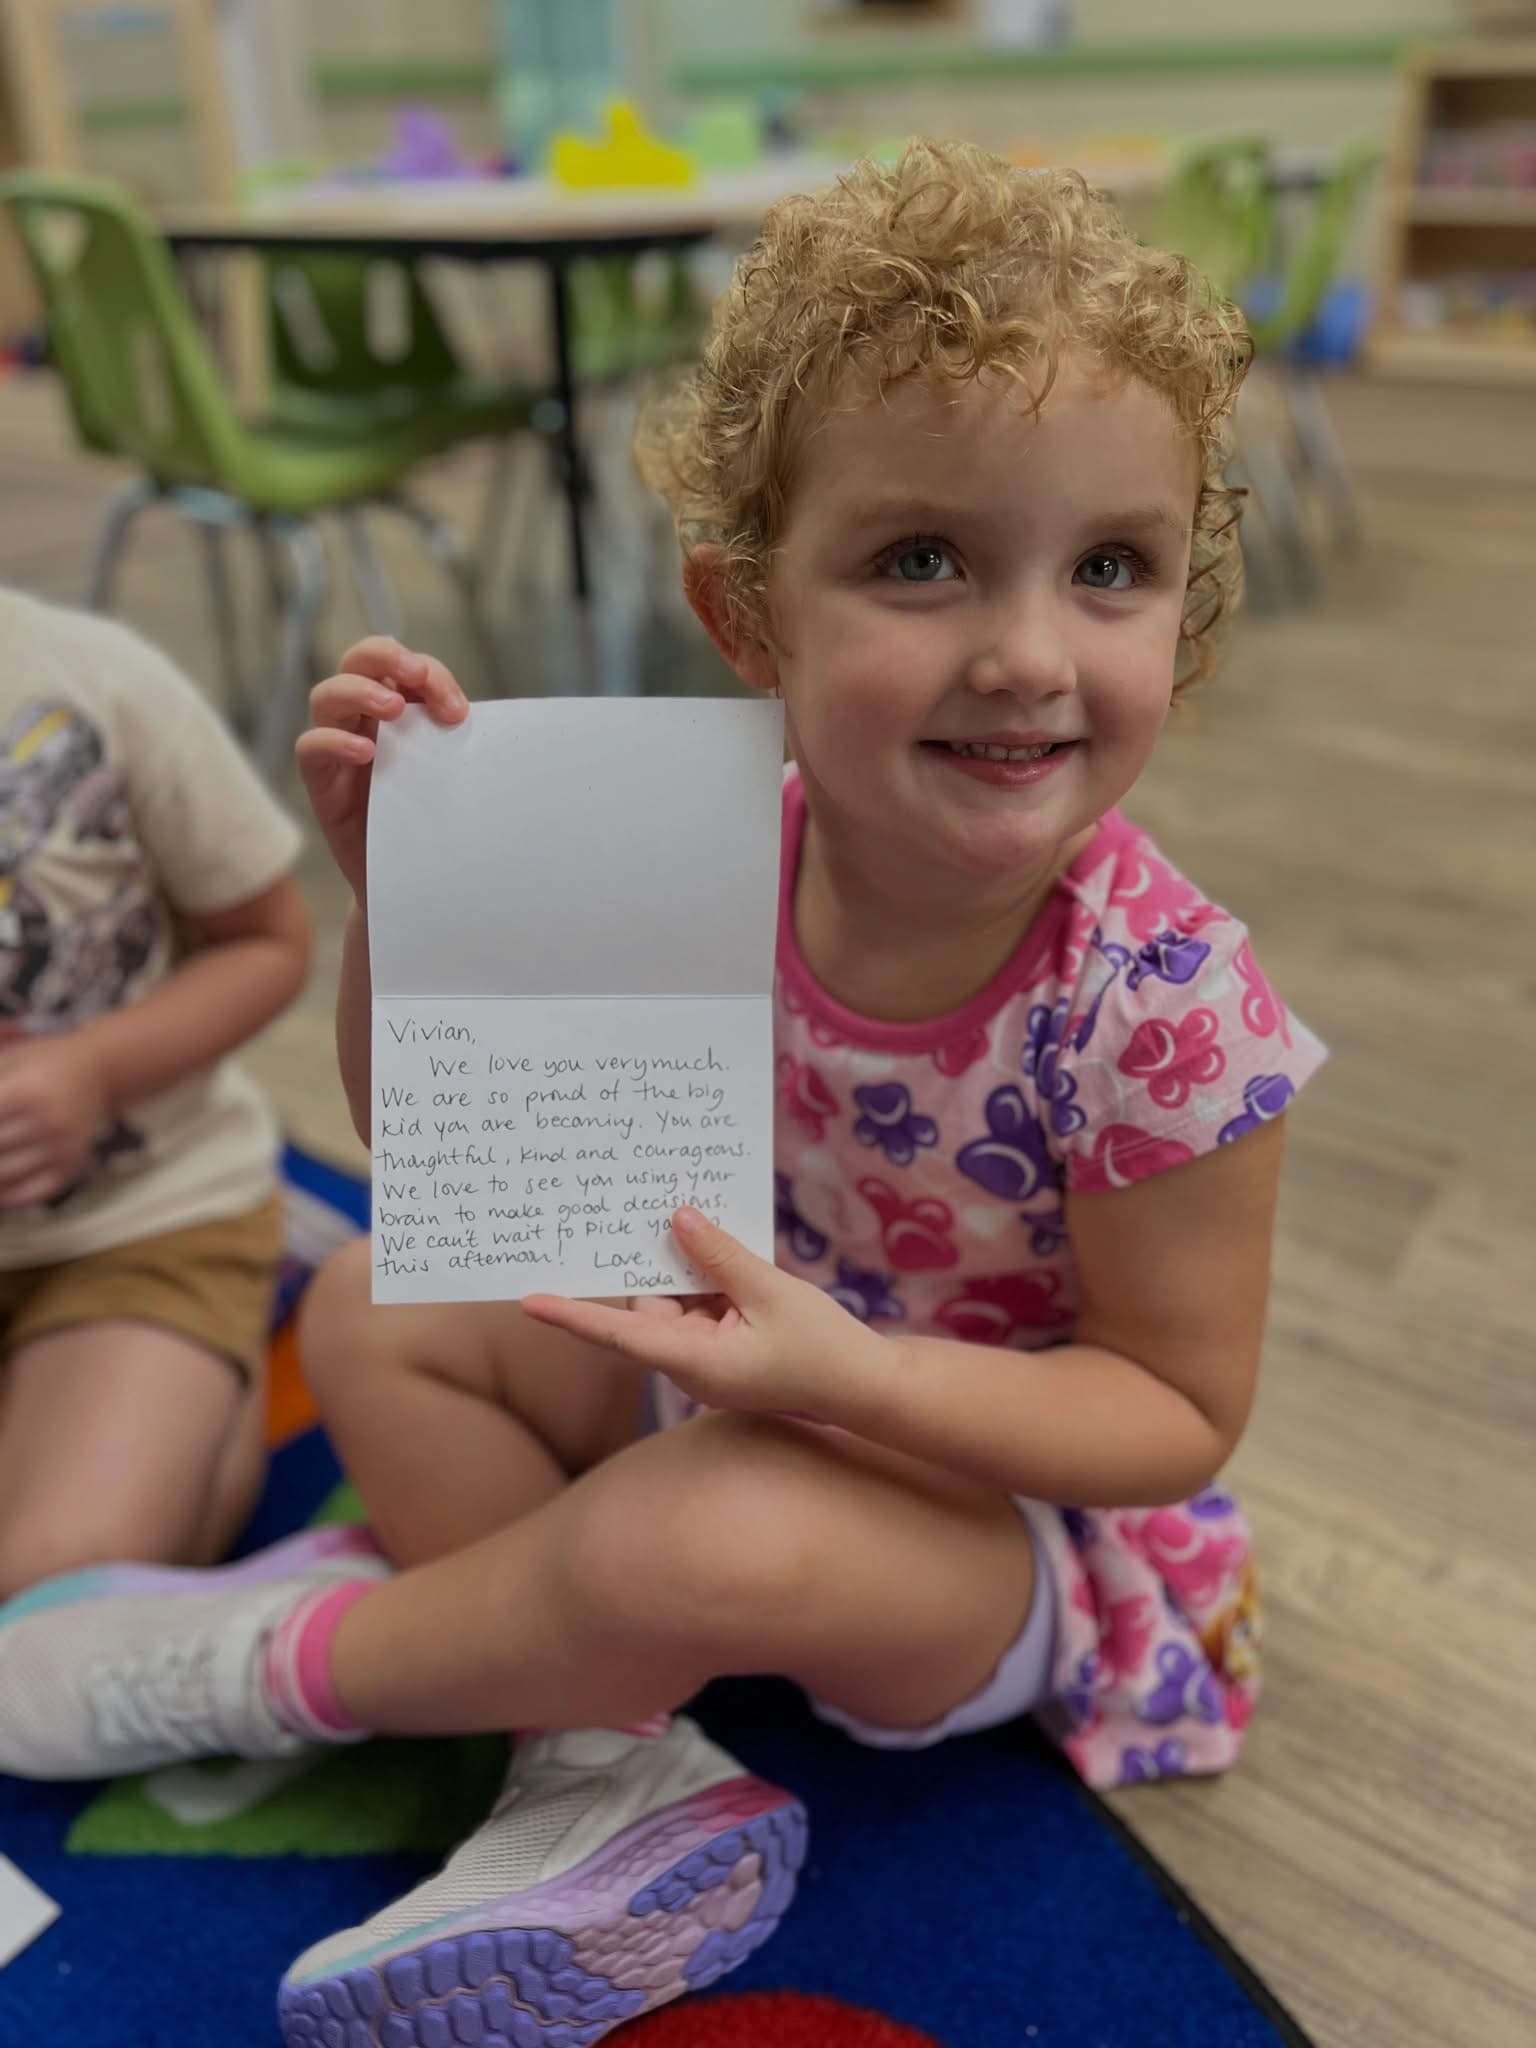 Vivian,
We love you very much.
We are so proud of the big
kid you are becoming. You are
thoughtful, kind and courageous.
We love to see you using your
brain to make good decisions.
We can't wait to pick
this afternoon! Love,
Dada